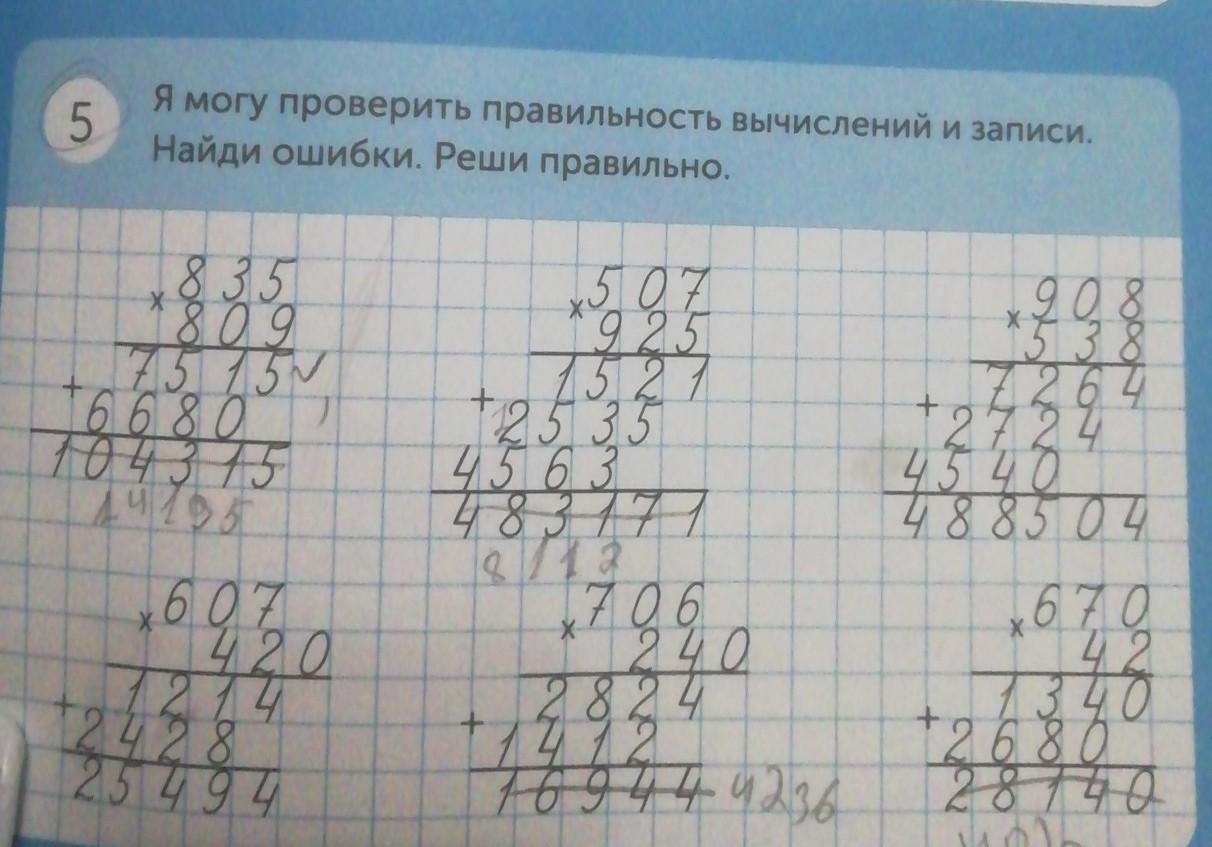 5
Я могу проверить правильность вычислений и записи.
Найди ошибки. Реши правильно.
× 835
809
7515 ✓
+
6680
104315
14195
× 507
925
1521
+
2535
4563
483171
8112
× 908
538
7264
+
2724
4540
488504
× 607
420
1214
+
2428
25494
× 706
240
2824
+
1412
16944 4236
× 670
42
1340
+
2680
28140